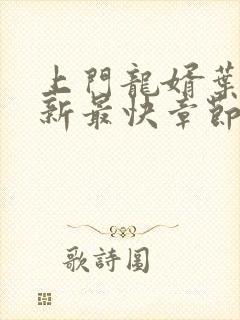 上門龍婿葉
新最快章節
歌詩圖